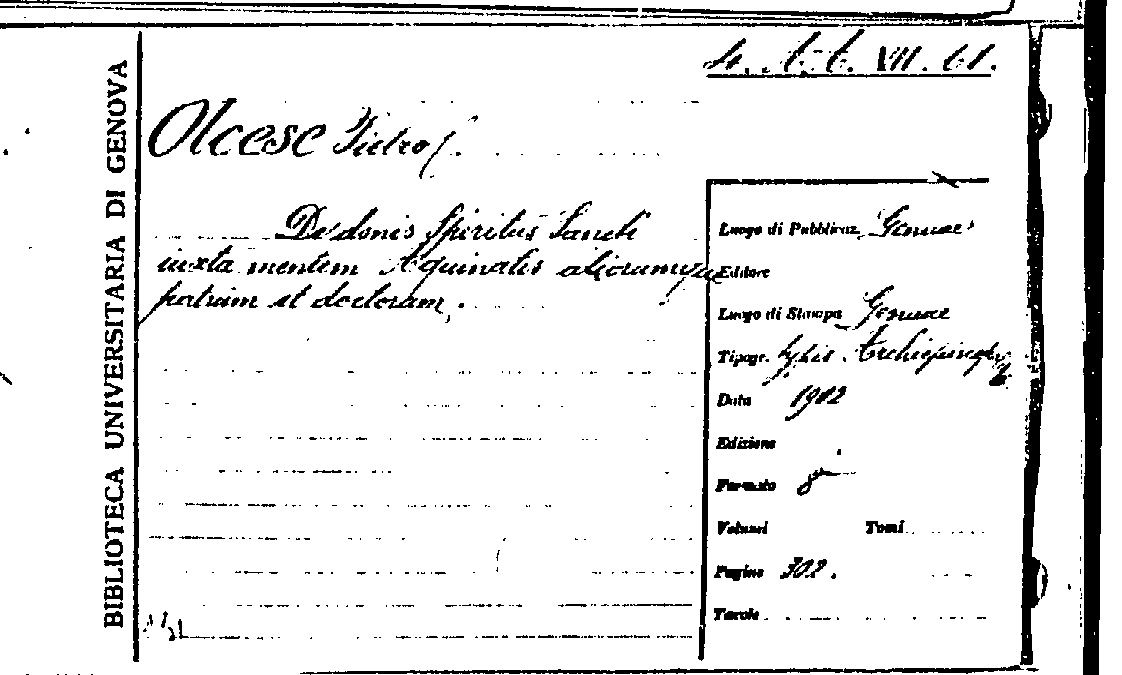 BIBLIOTECA UNIVERSITARIA DI GENOVA
4. VII. 61.
Olcese Pietro
De donis Spiritus Sancti
iuxta mentem Aquinatis aliorumque
patrum et doctorum.
Luogo di Pubblicaz. Genuae
Editore
Luogo di Stampa Genuae
Tipogr. typis
Data 1902
Edizione
Formato 8°
Volumi Tomi
Pagine 302.
Tavole